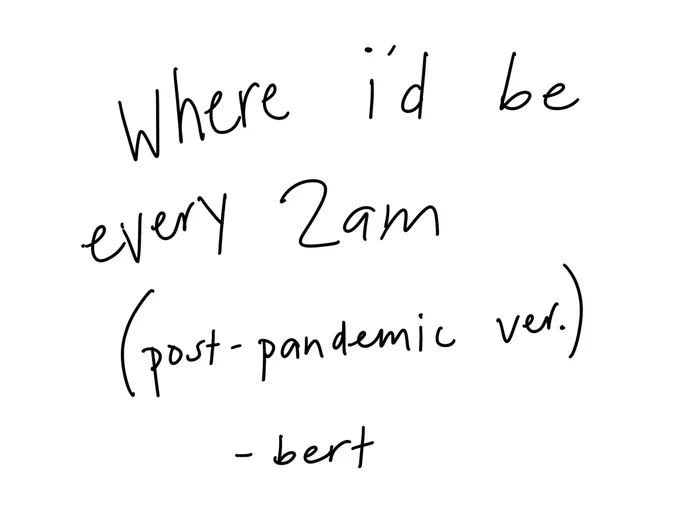 Where i'd be
every 2am
(post-pandemic ver.)
- bert